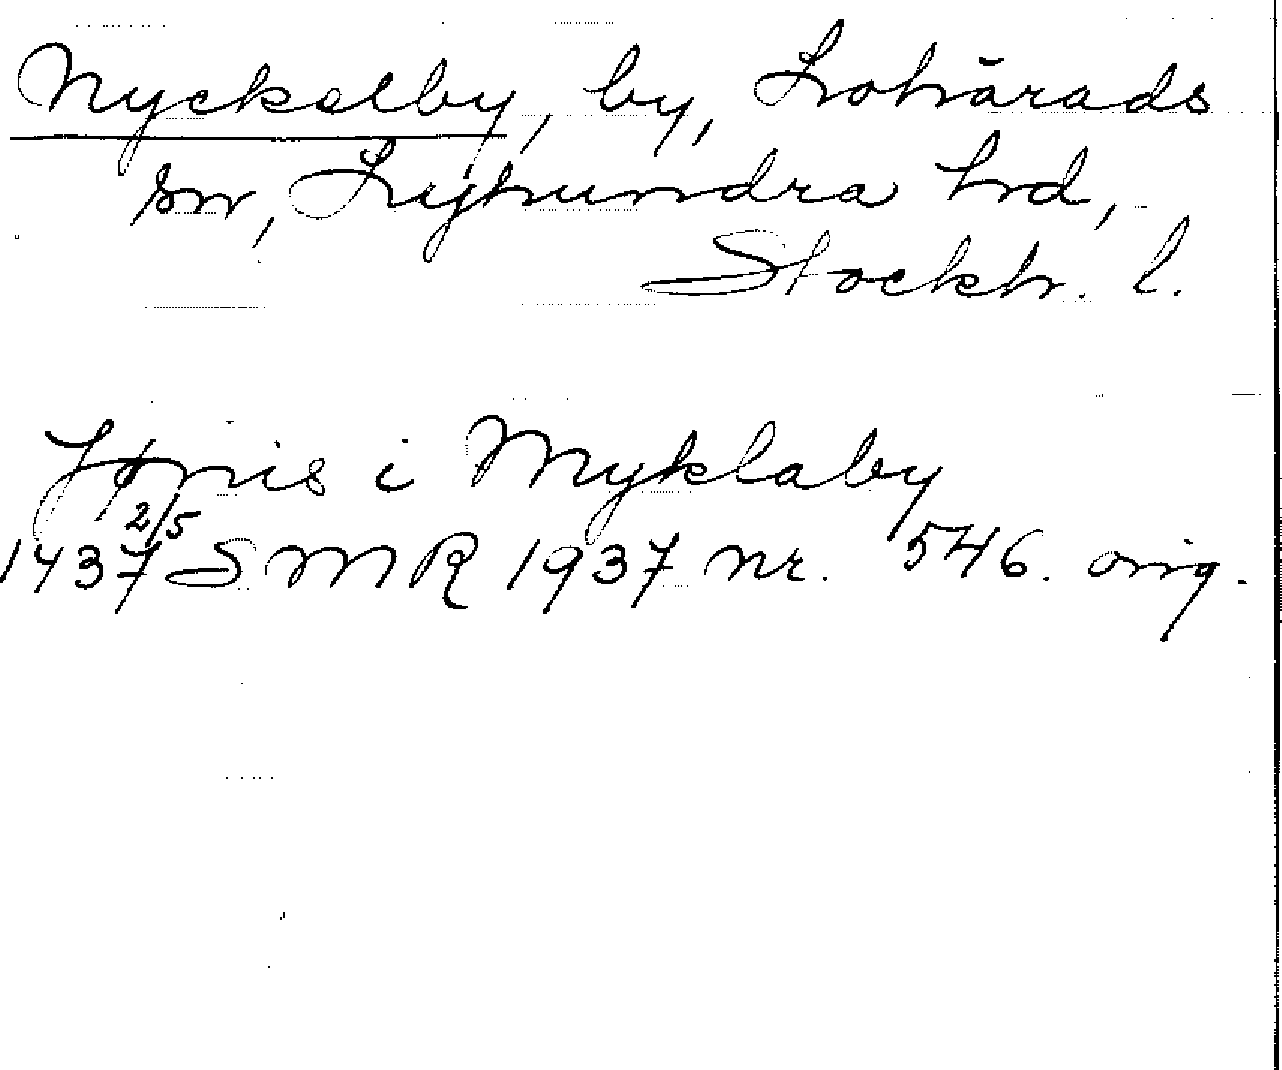 Nyckelby, by, Lohärads
sn, Lyhundra hd,
Stockh. l.
Jønis i Myklaby
2/5
1437 SMR 1937 nr. 546. orig.